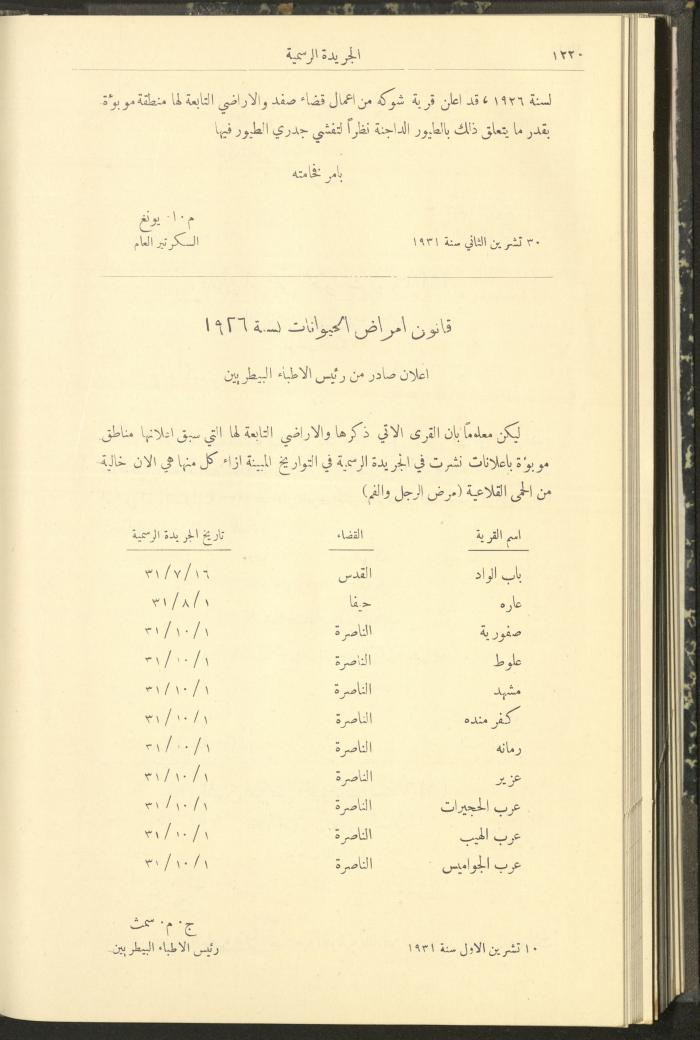 ١٢٢٠ الجريدة الرسمية
لسنة ١٩٢٦ ، قد اعلن قرية شوكه من اعمال قضاء صفد والاراضي التابعة لها منطقة موبؤة
بقدر ما يتعلق ذلك بالطيور الداجنة نظراً لتفشي جدري الطيور فيها
بامر فخامته
م٠ا٠ يونغ
٣٠ تشرين الثاني سنة ١٩٣١ السكرتير العام
قانون امراض الحيوانات لسنة ١٩٢٦
اعلان صادر من رئيس الاطباء البيطريين
ليكن معلوماً بان القرى الاتي ذكرها والاراضي التابعة لها التي سبق اعلانها مناطق
موبؤة باعلانات نشرت في الجريدة الرسمية في التواريخ المبينة ازاء كل منها هي الان خالية
من الحمى القلاعية (مرض الرجل والفم)
اسم القرية القضاء تاريخ الجريدة الرسمية
باب الواد القدس ٣١/٧/١٦
عاره حيفا ٣١/٨/١
صفورية الناصرة ٣١/١٠/١
علوط الناصرة ٣١/١٠/١
مشهد الناصرة ٣١/١٠/١
كفر منده الناصرة ٣١/١٠/١
رمانه الناصرة ٣١/١٠/١
عزير الناصرة ٣١/١٠/١
عرب الحجيرات الناصرة ٣١/١٠/١
عرب الهيب الناصرة ٣١/١٠/١
عرب الجواميس الناصرة ٣١/١٠/١
ج٠ م٠ سمث
١٠ تشرين الاول سنة ١٩٣١ رئيس الاطباء البيطريين